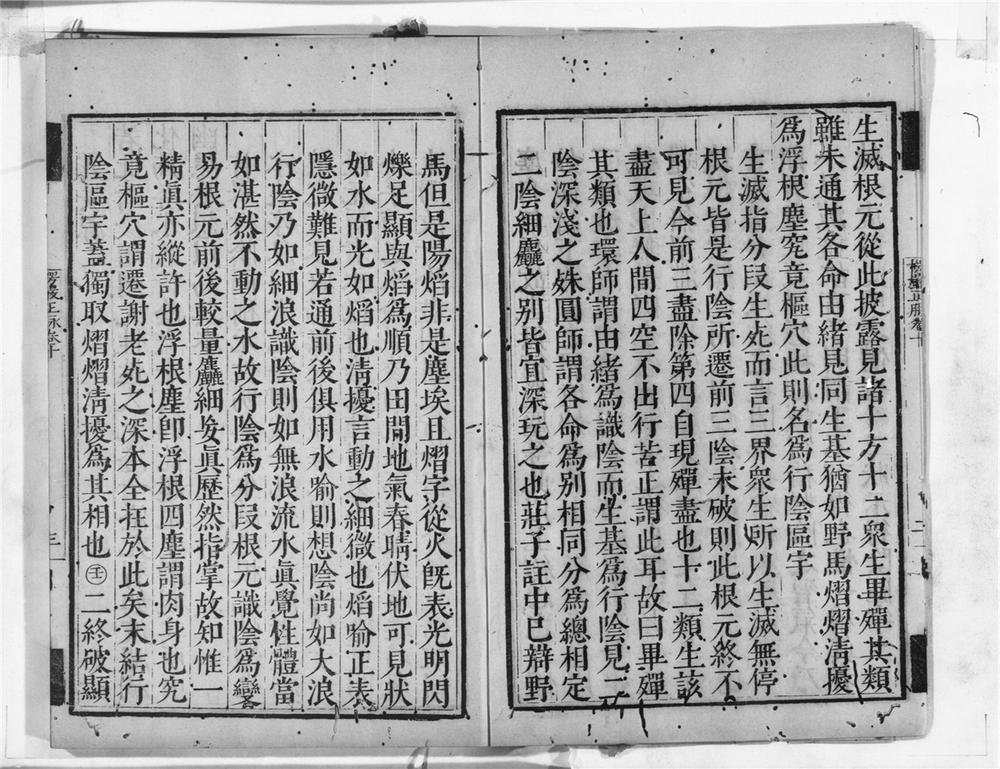 生滅根元從此披露見諸十方十二衆生畢殫其類
雖未通其各命由緒見同生基猶如野馬熠熠淸擾
爲浮根塵究竟樞穴此則名爲行陰區宇
生滅指分段生死而言三界衆生所以生滅無停
根元皆是行陰所遷前三陰未破則此根元終不
可見今前三盡除第四自現殫盡也十二類生該
盡天上人間四空不出行苦正謂此耳故曰畢殫
其類也環師謂由緒爲識陰而生基爲行陰見二
陰深淺之姝圓師謂各命爲別相同分爲總相定
二陰細麤之別皆宜深玩之也莊子註中已辯野
馬但是陽熖非是塵埃且熠字從火旣表光明閃
爍足顯與熖爲順乃田間地氣春晴伏地可見狀
如水而光如熖也淸擾言動之細微也熖喻正表
隱微難見若通前後俱用水喻則想陰尚如大浪
行陰乃如細浪識陰則如無浪流水眞覺性體當
如湛然不動之水故行陰爲分段根元識陰爲變
易根元前後較量麤細妄眞歷然指掌故知惟一
精眞亦縱許也浮根塵卽浮根四塵謂肉身也究
竟樞穴謂遷謝老死之深本全在於此矣末結行
陰區宇蓋獨取熠熠淸擾爲其相也㊅二終破顯
三
二